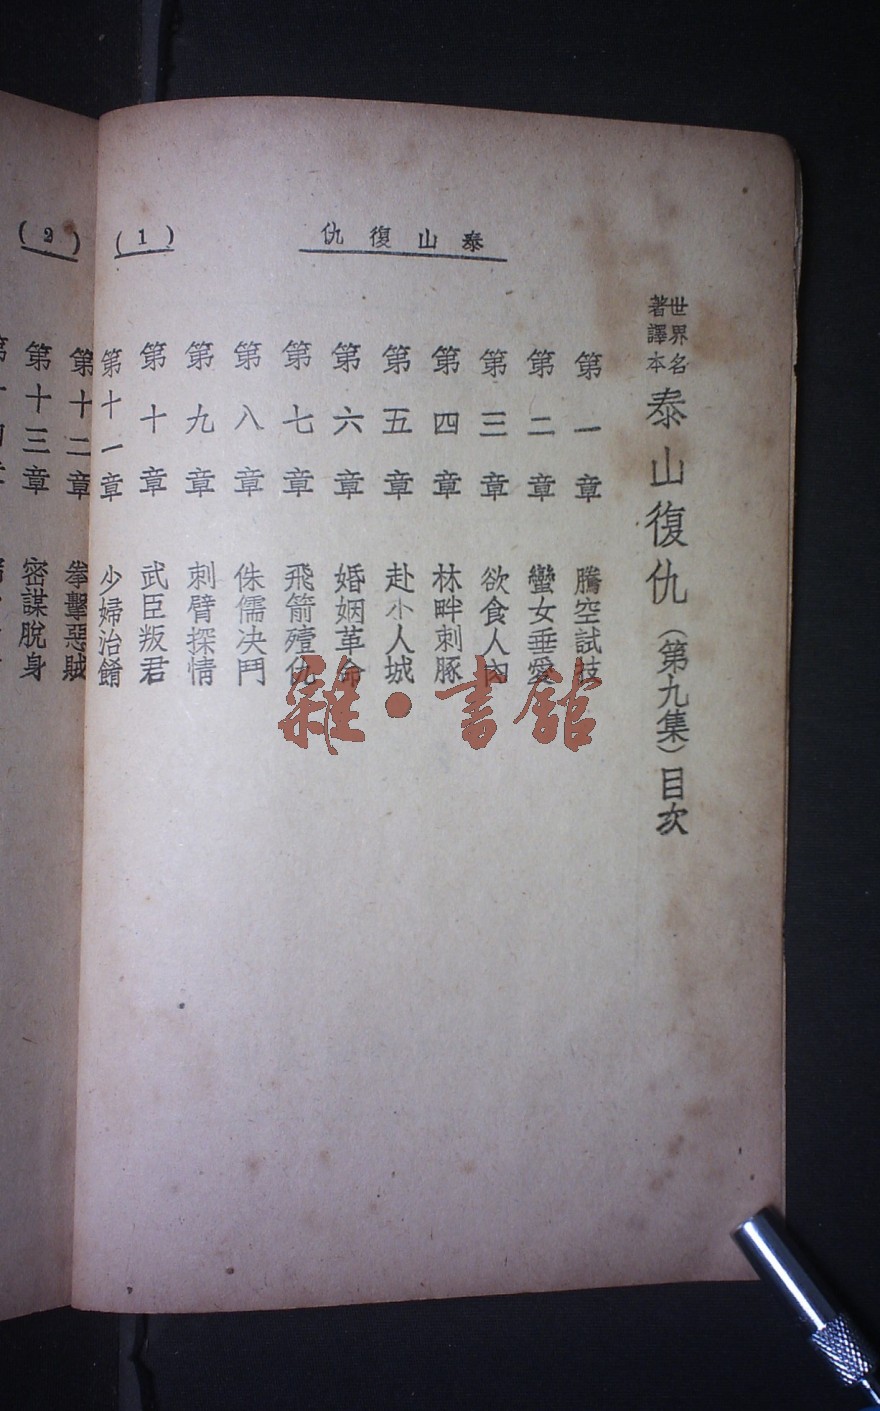 泰山復仇
(1)
世界名著譯本
泰山復仇(第九集)目次
第一章 騰空試技
第二章 蠻女垂愛
第三章 欲食人肉
第四章 林畔刺豚
第五章 赴小人城
第六章 婚姻革命
第七章 飛箭殪仇
第八章 侏儒决鬥
第九章 刺臂探情
第十章 武臣叛君
第十一章 少婦治餚
(2)
第十二章 拳擊惡賊
第十三章 密謀脫身
雜·書館